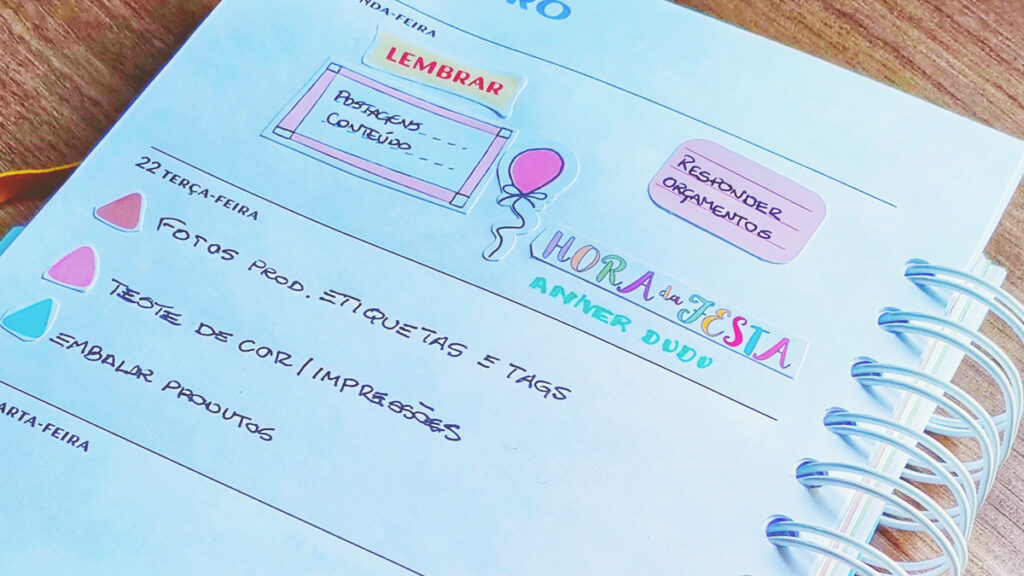 RO
NDA-FEIRA
LEMBRAR
POSTAGENS
CONTEÚDO
RESPONDER
ORÇAMENTOS
HORA da FESTA
ANIVER DUDU
22 TERÇA-FEIRA
FOTOS PROD. ETIQUETAS E TAGS
TESTE DE COR/IMPRESSÕES
EMBALAR PRODUTOS
ARTA-FEIRA